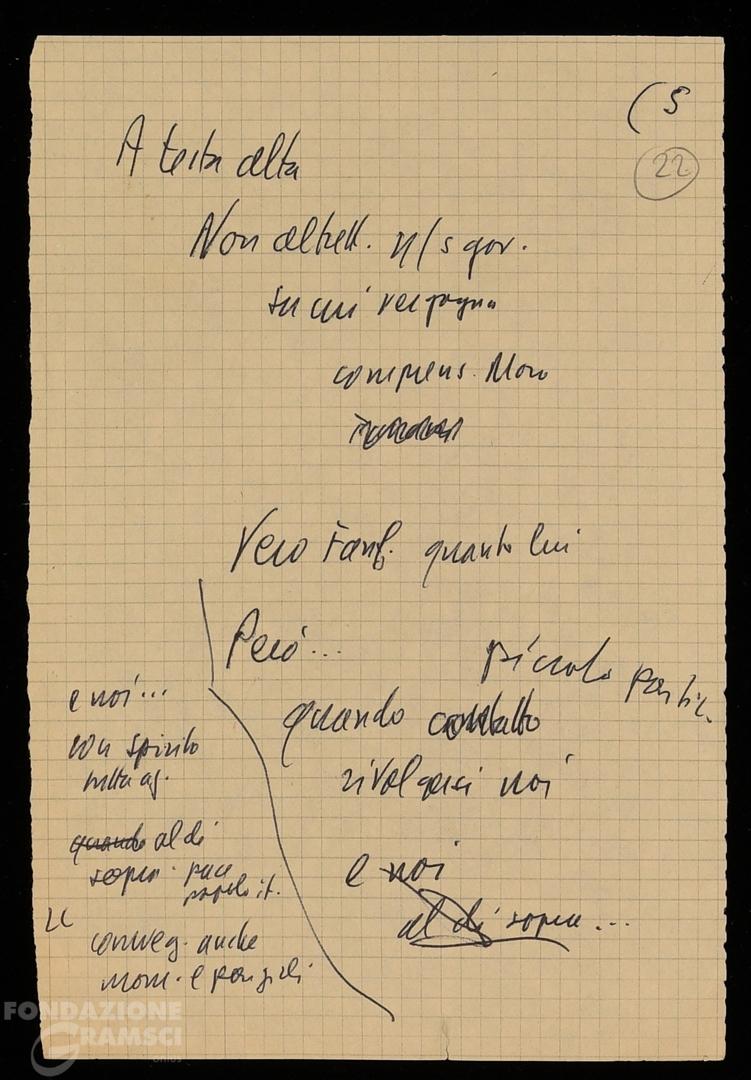 (5
22
A testa alta
Non altrett. n/s gov.
su cui vergogna
comprens. Moro
Vero Fanf. quanto lui
Però...
piccolo partic.
quando contatto
rivolgersi noi
e noi
al di sopra...
e noi...
con spirito
quando al di
sopra pace
popolo it.
conseg. anche
mom. e
FONDAZIONE
GRAMSCI
onlus